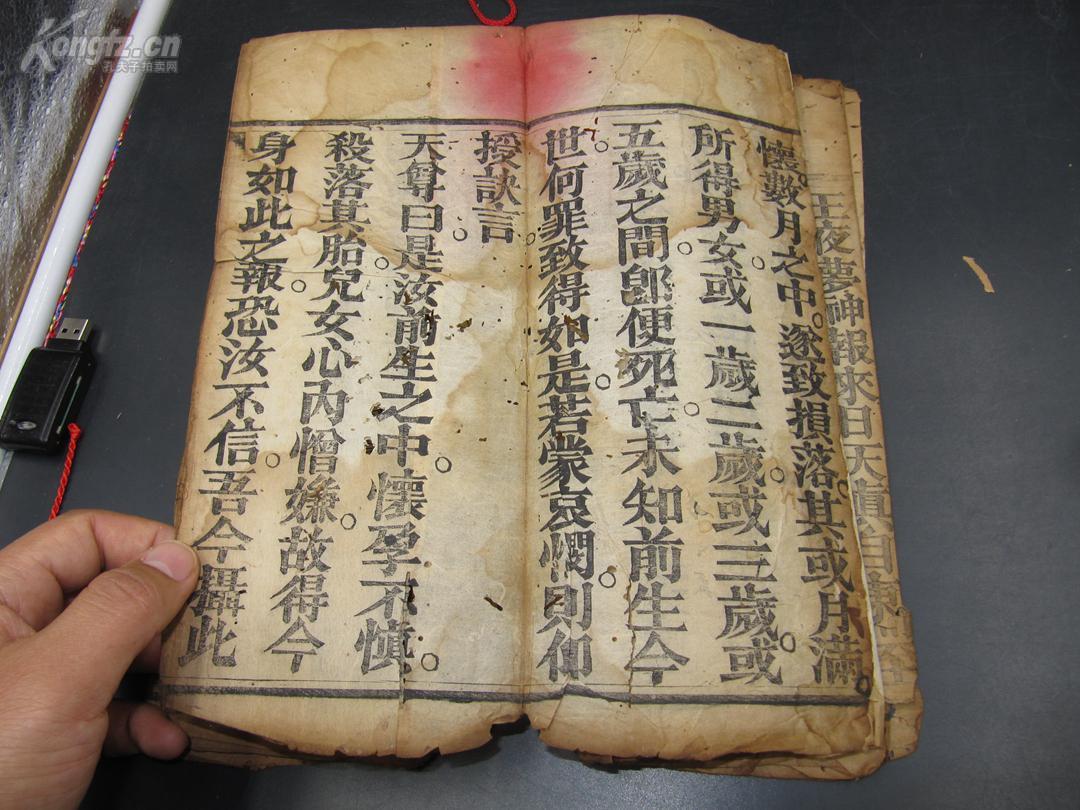 Kongfz.cn
孔夫子拍卖网
王夜夢神報來日天眞自
懷數月之中。遂致損落其或月滿。
所得男女。或一歲二歲。或三歲。或
五歲之間。卽便死亡。未知前生今
世。何罪致得如是。若蒙哀憫。則仰
授訣言。
天尊曰。是汝前生之中。懷孕不慎。
殺落其胎。兒女心內憎嫌。故得今
身如此之報。恐汝不信。吾今攝此